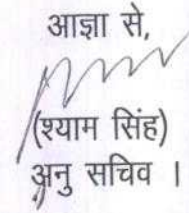 आज्ञा से,
(श्याम सिंह)
अनु सचिव ।